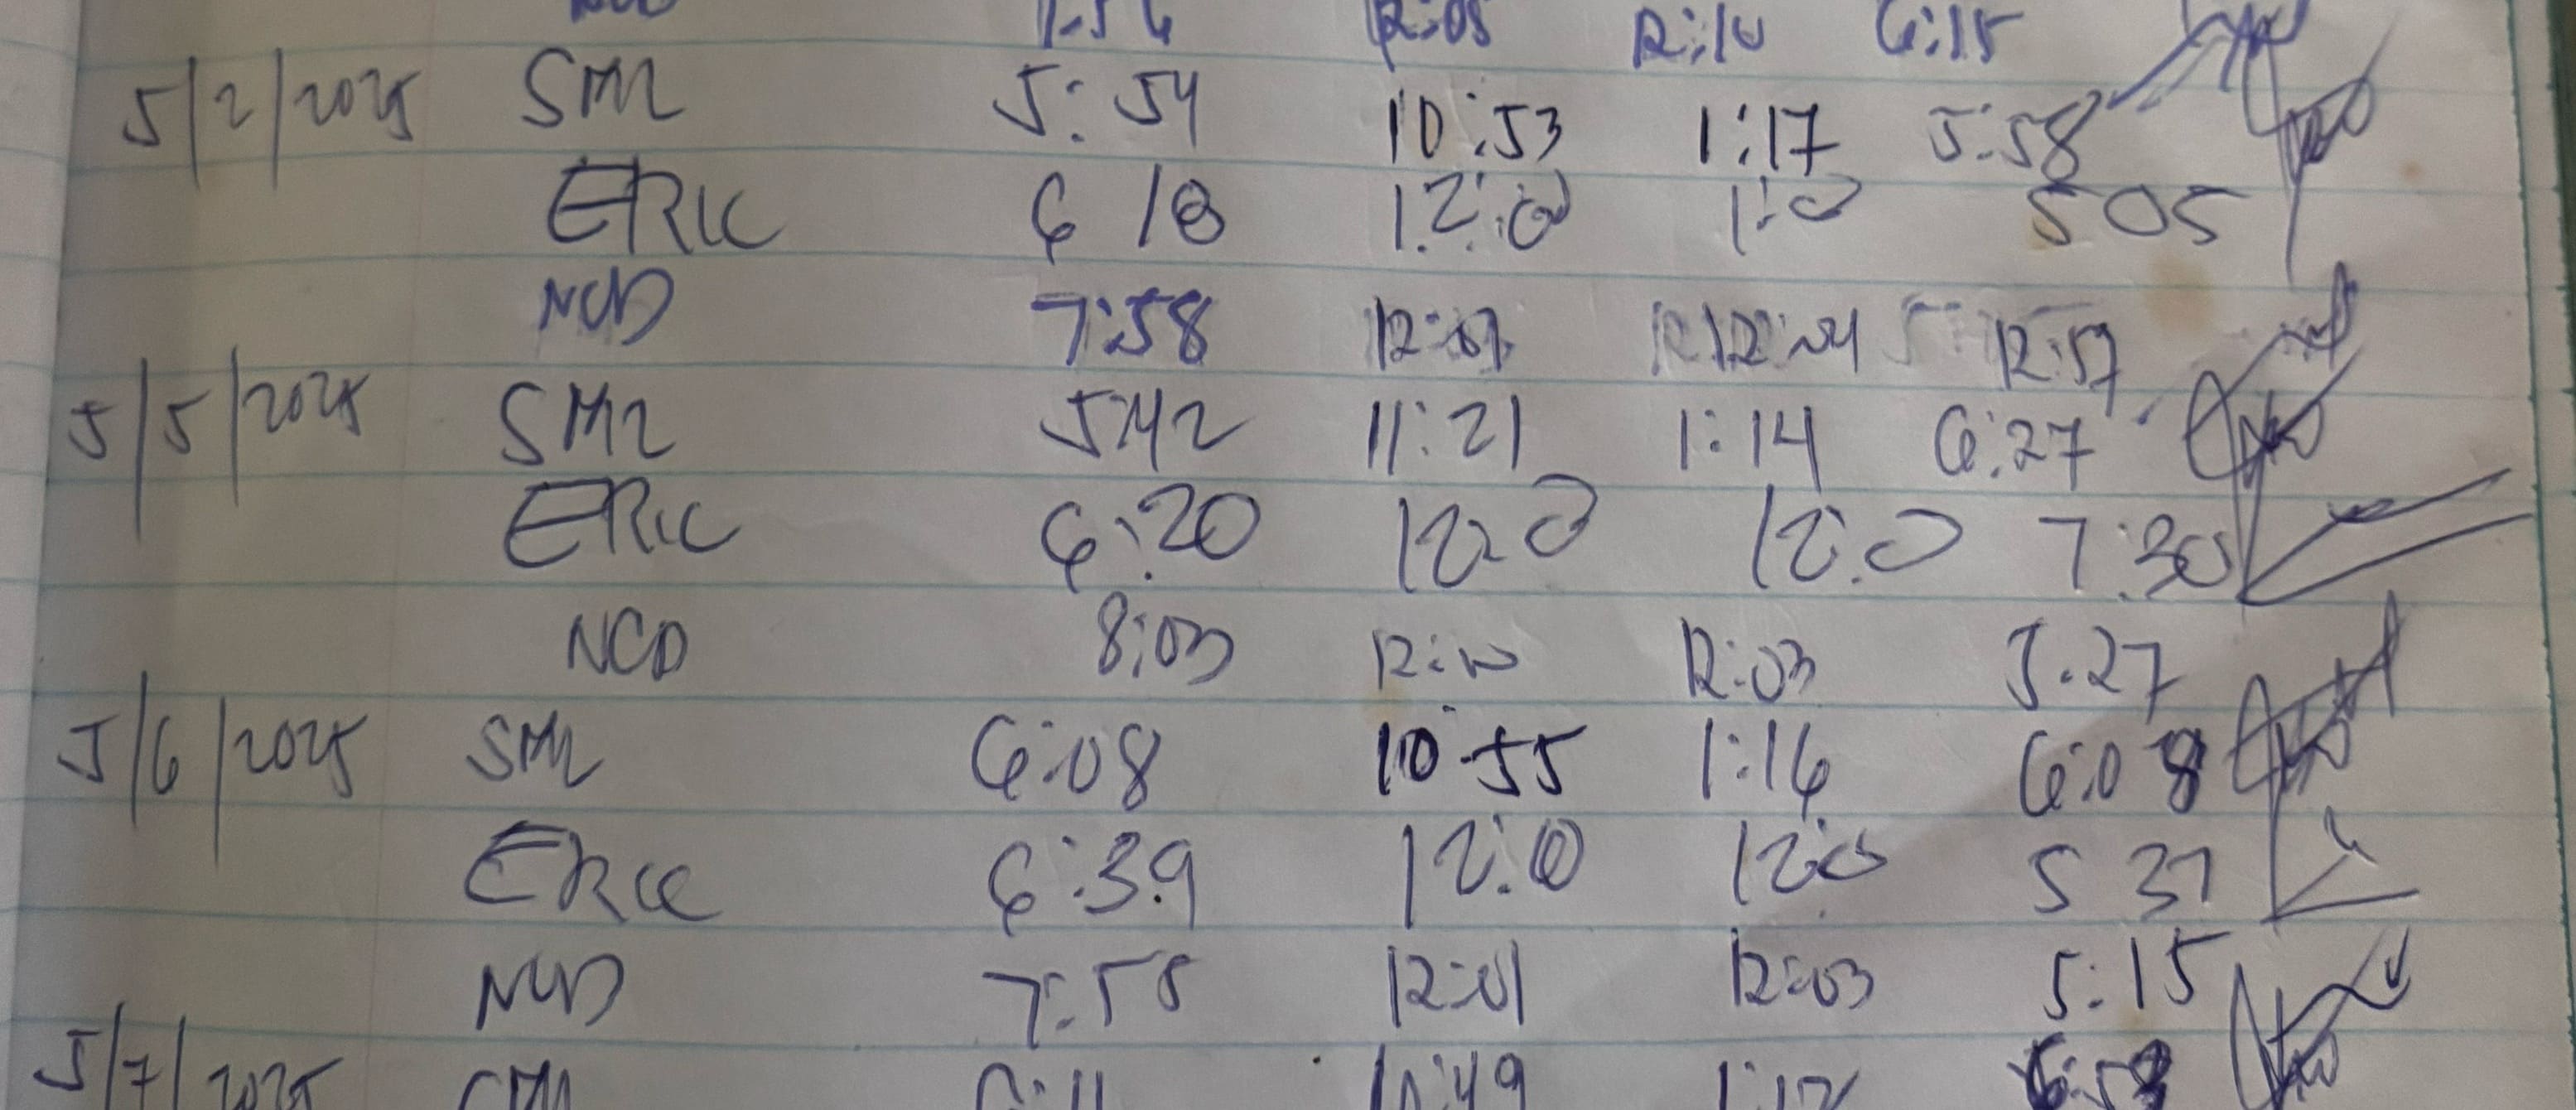 12:05 12:10 6:15
5/2/2025 SML 5:54 10:53 1:17 5:58
ERIC 6 18 12:0 1:0 5 05
NCD 7:58 12:07 12:04 12:57
5/5/2025 SML 5:42 11:21 1:14 6:27
ERIC 6:20 12:0 12:0 7:30
NCD 8:03 12:10 12:03 5:27
5/6/2025 SML 6:08 10:55 1:16 6:08
ERIC 6:39 12:0 12:0 5 37
NCD 7:58 12:01 12:03 5:15
5/7/2025 SML 6:11 10:49 1:12